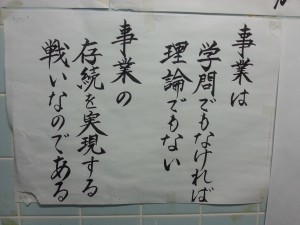 事業は
学問でもなければ
理論でもない
事業の
存続を実現する
戦いなのである